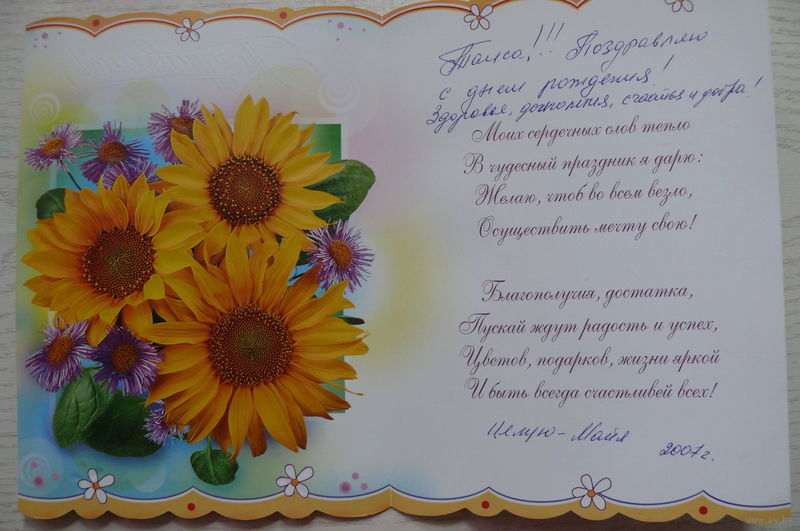 Таиса!!! Поздравляю
с днем рождения!
Здоровья, долголетия, счастья и добра!
Моих сердечных слов тепло
В чудесный праздник я дарю:
Желаю, чтоб во всем везло,
Осуществить мечту свою!
Благополучия, достатка,
Пускай ждут радость и успех,
Цветов, подарков, жизни яркой
И быть всегда счастливей всех!
Целую - Майя
2007 г.